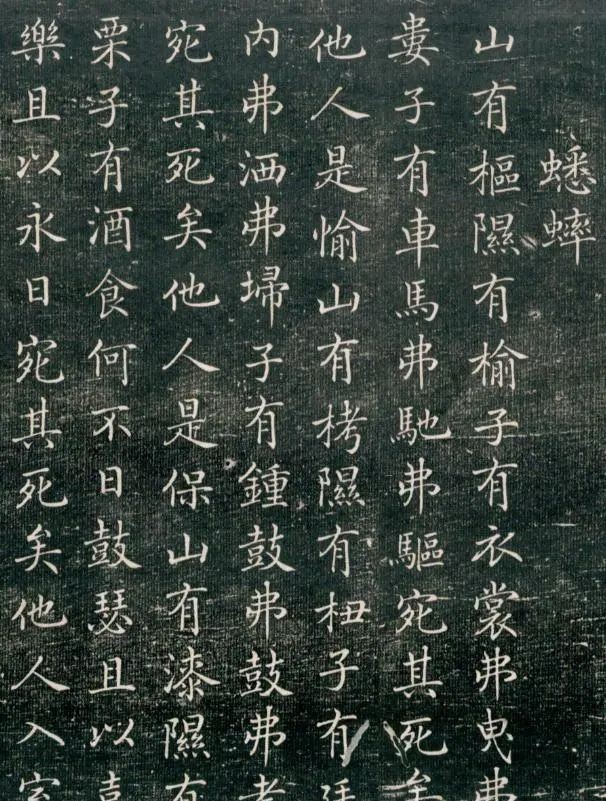 蟋蟀
山有樞隰有榆子有衣裳弗曳弗
婁子有車馬弗馳弗驅宛其死矣
他人是愉山有栲隰有杻子有廷
內弗洒弗埽子有鍾鼓弗鼓弗考
宛其死矣他人是保山有漆隰有
栗子有酒食何不日鼓瑟且以喜
樂且以永日宛其死矣他人入室